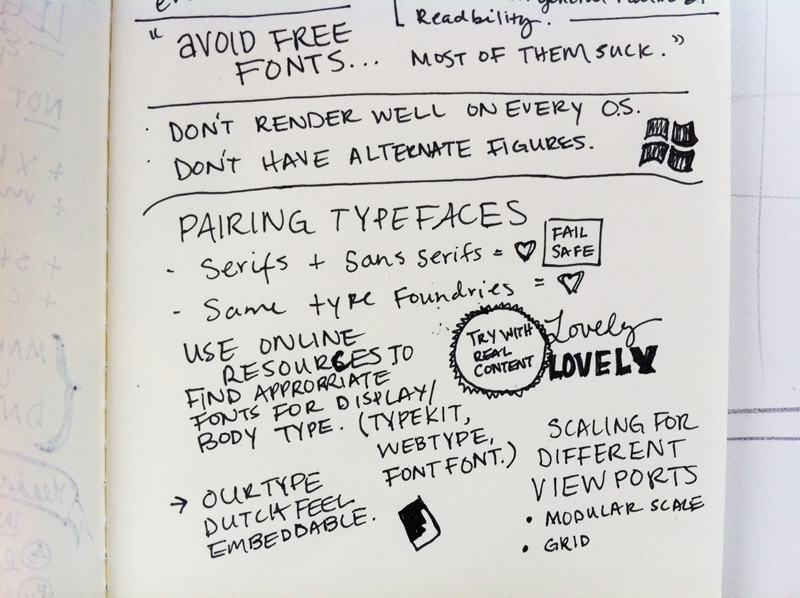 Readbility.
" AVOID FREE
FONTS... MOST OF THEM SUCK."
· DON'T RENDER WELL ON EVERY O.S.
· DON'T HAVE ALTERNATE FIGURES.
PAIRING TYPEFACES
- Serifs + Sans Serifs = ♡
FAIL
SAFE
- Same type Foundries = ♡
USE ONLINE
RESOURCES TO
FIND APPRORRIATE
FONTS FOR DISPLAY/
BODY TYPE. (TYPEKIT,
WEBTYPE,
FONTFONT.)
TRY WITH
REAL
CONTENT
Lovely
LOVELY
→ OUR TYPE
DUTCH FEEL
EMBEDDABLE.
SCALING FOR
DIFFERENT
VIEWPORTS
• MODULAR SCALE
• GRID